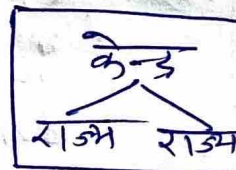 केन्द्र
राज्य राज्य